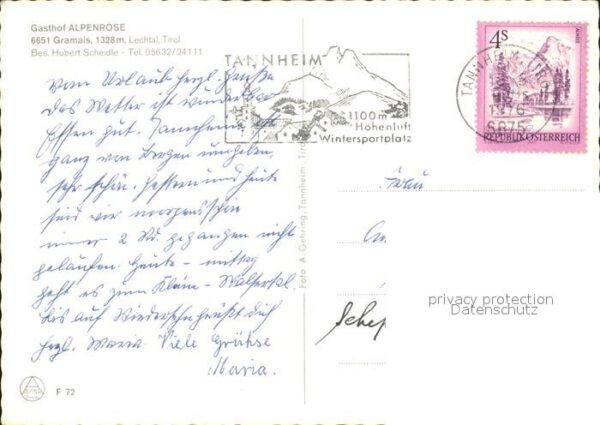 Gasthof ALPENROSE
6651 Gramais, 1328m, Lechtal, Tirol
Bes. Hubert Scheidle - Tel. 05632/24111
TANNHEIM
1100m
Höhenluft
Wintersportplatz
TANNHEIM
6675
4 S
REPUBLIK ÖSTERREICH
Vom Urlaub herzl. Grüße
Das Wetter ist wunderbar
Essen gut. Tannheim
ganz von Bergen umgeben,
sehr schön. Gestern und heute
sind wir morgens schon
immer 2 Std. gegangen nicht
gelaufen. Heute - mittag
geht es zum Klein - Walsertal.
Bis auf Wiedersehn grüßt dich
herzl. Maria Viele Grüße
Maria.
Foto A. Gehring, Tannheim, Tirol
Frau
privacy protection
Datenschutz
F 72